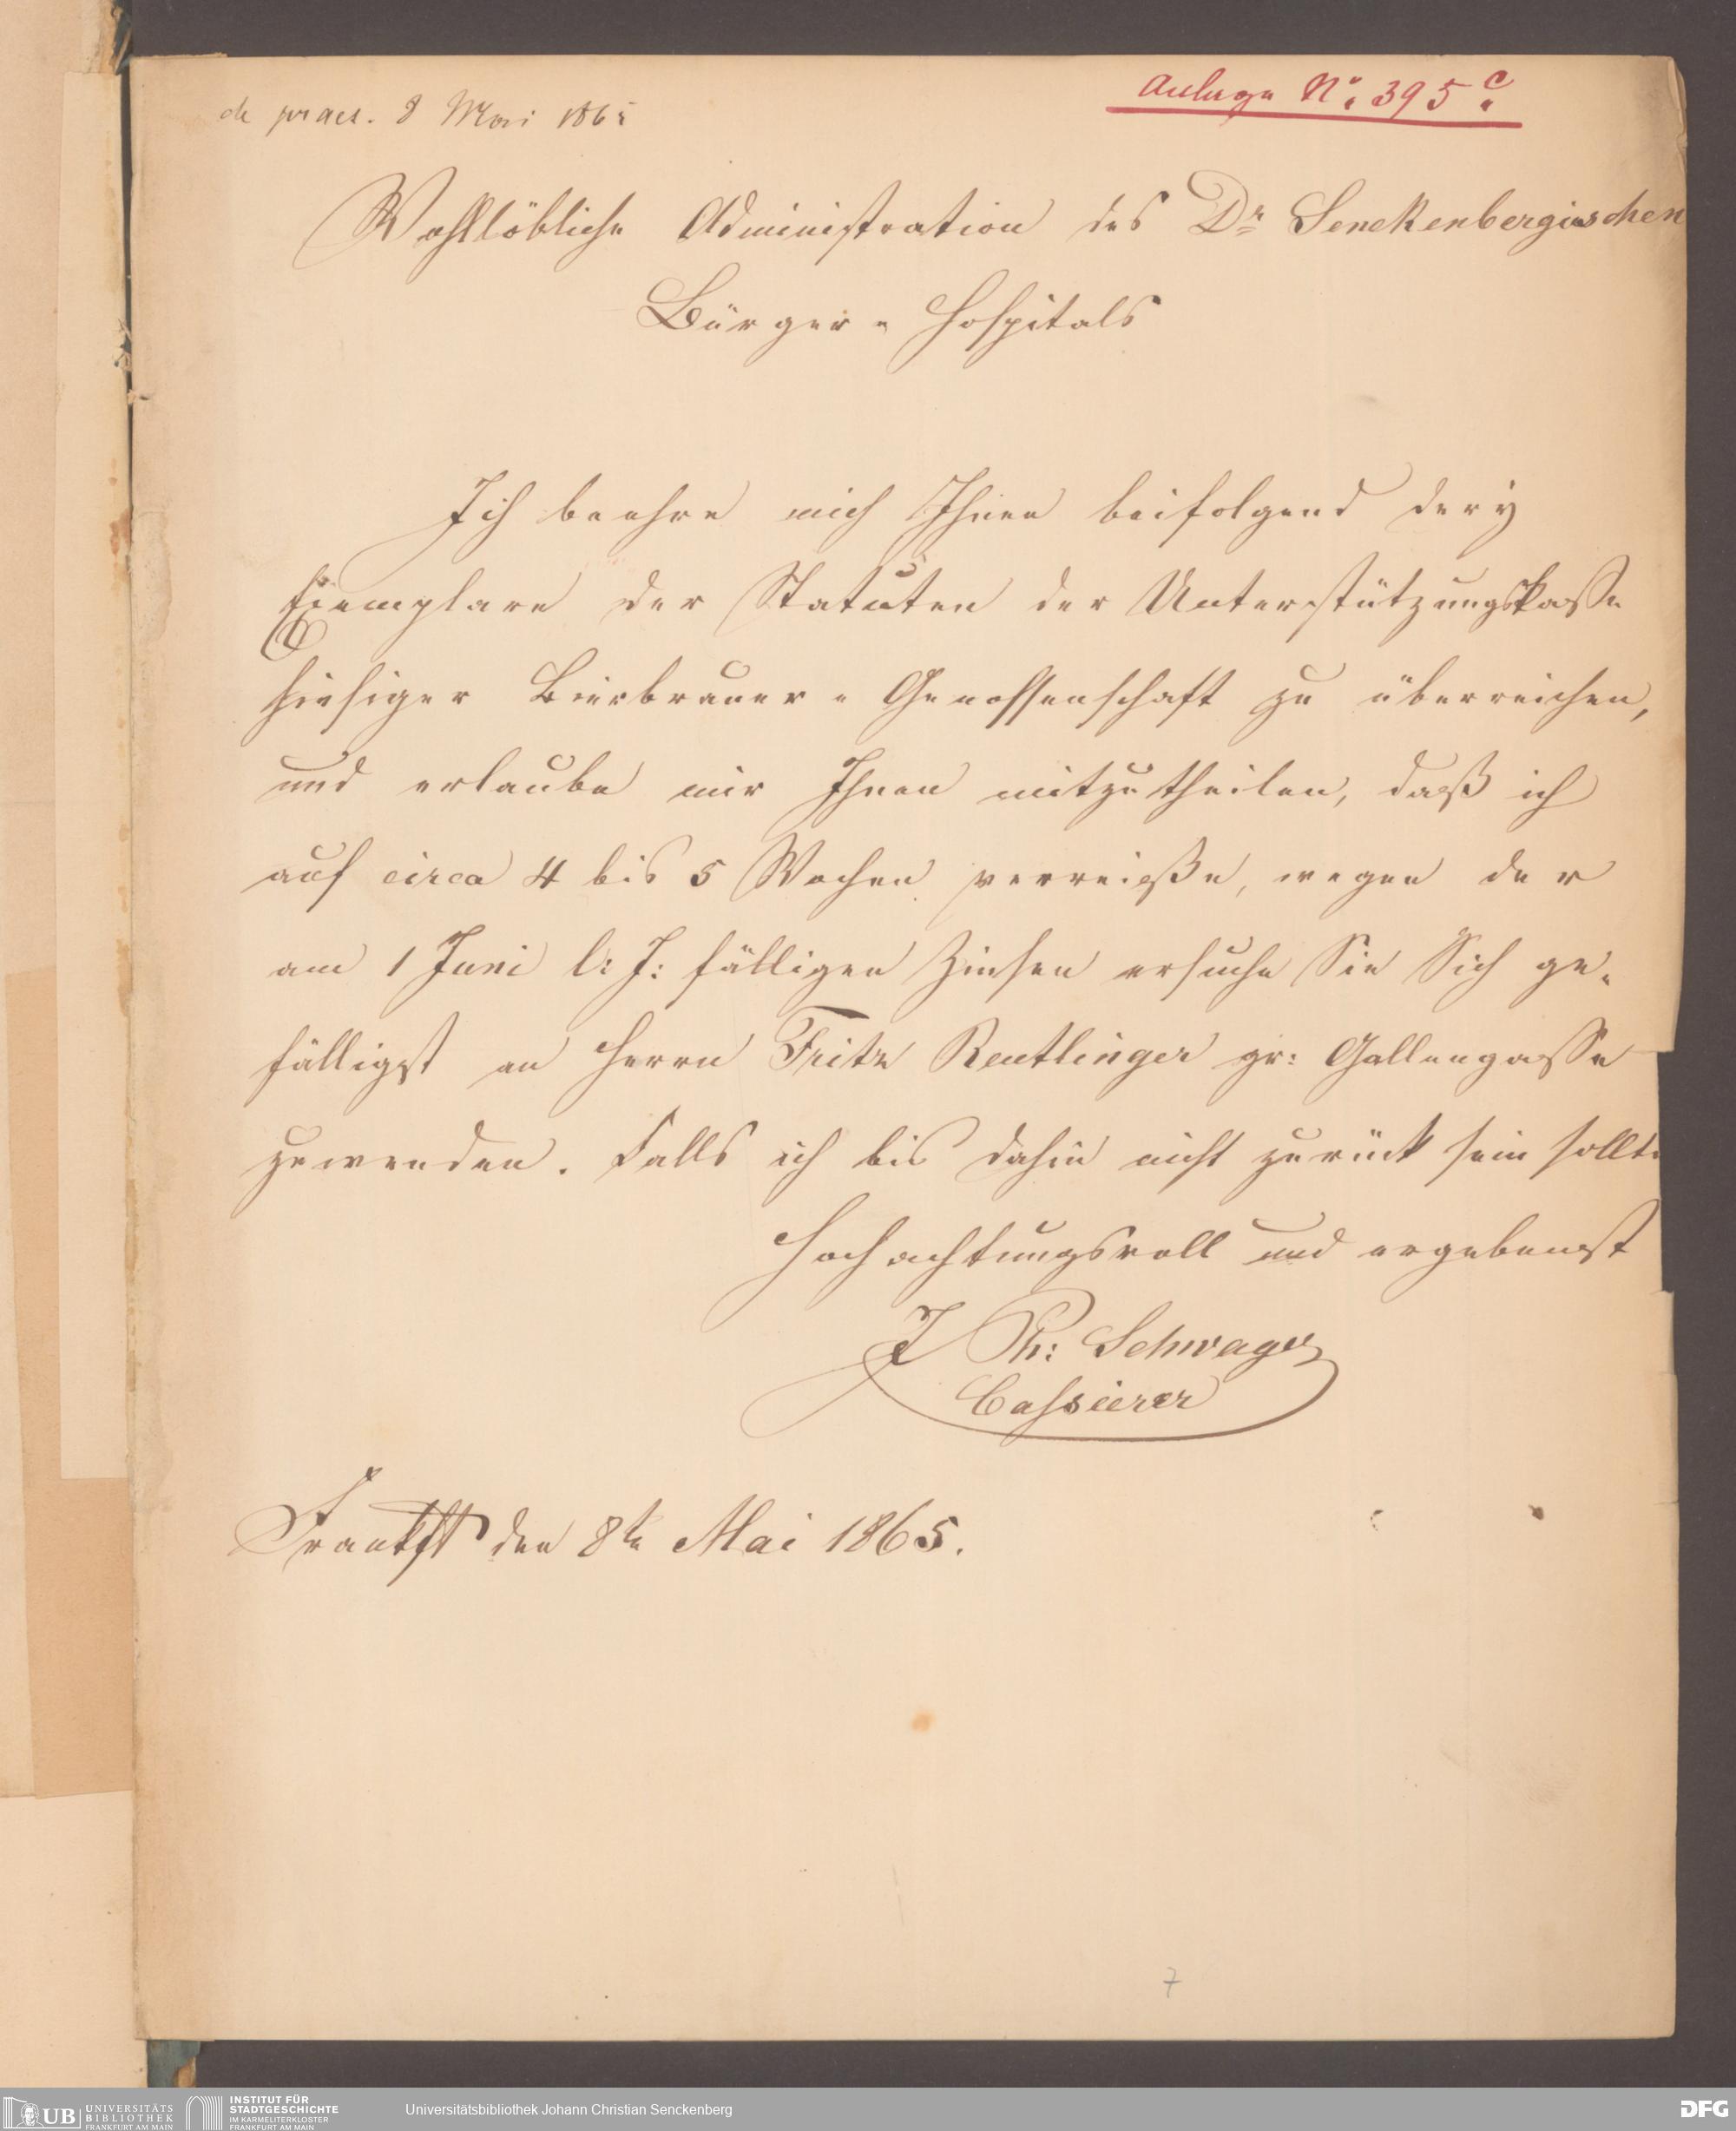 de praes. 8 Mai 1865
Anlage No. 395 c.
Wohllöbliche Administration des Dr Senckenbergischen
Bürger-Hospitals
Ich beehre mich Ihnen beifolgend
Exemplare der Statuten der Unterstützungskasse
hiesiger Bierbrauer-Genossenschaft zu überreichen,
und erlaube mir Ihnen mitzutheilen, daß ich
auf circa 4 bis 5 Wochen verreiße, wegen der
am 1 Juni l: J: fälligen Zinsen ersuche Sie Sich ge-
fälligst an Herrn Fritz Reutlinger gr: Gallengasse
zu wenden. Falls ich bis dahin nicht zurück sein sollte
Hochachtungsvoll und ergebenst
J Ph: Schwager
Cassierer
Frankft den 8te Mai 1865.
7
UB UNIVERSITÄTS
BIBLIOTHEK
FRANKFURT AM MAIN
INSTITUT FÜR
STADTGESCHICHTE
IM KARMELITERKLOSTER
FRANKFURT AM MAIN
Universitätsbibliothek Johann Christian Senckenberg
DFG